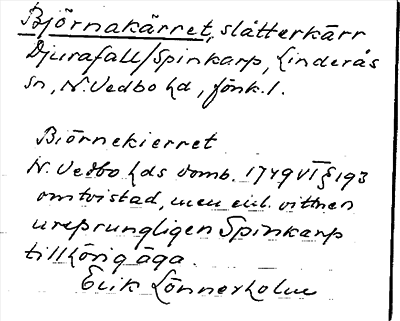 Björnakärret, slåtterkärr
Djurafall/Spinkarp, Linderås
sn, N. Vedbo hd, Jönk. l.
Biörnekierret
N. Vedbo hds domb. 1749 VI § 193
omtvistad, men enl. vittnen
ursprungligen Spinkarp
tillhörig äga
Erik Lönnerholm